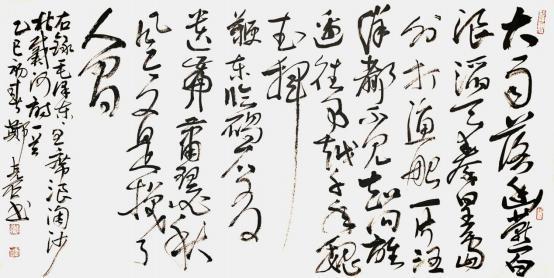 大雨落幽燕白
浪滔天秦皇岛
外打渔船一片汪
洋都不见知向谁
边往事越千年魏
武挥
鞭东临碣石有
遗篇萧瑟秋
风今又是换了
人间
右录毛泽东主席浪淘沙
北戴河词一首
乙巳初春郑书